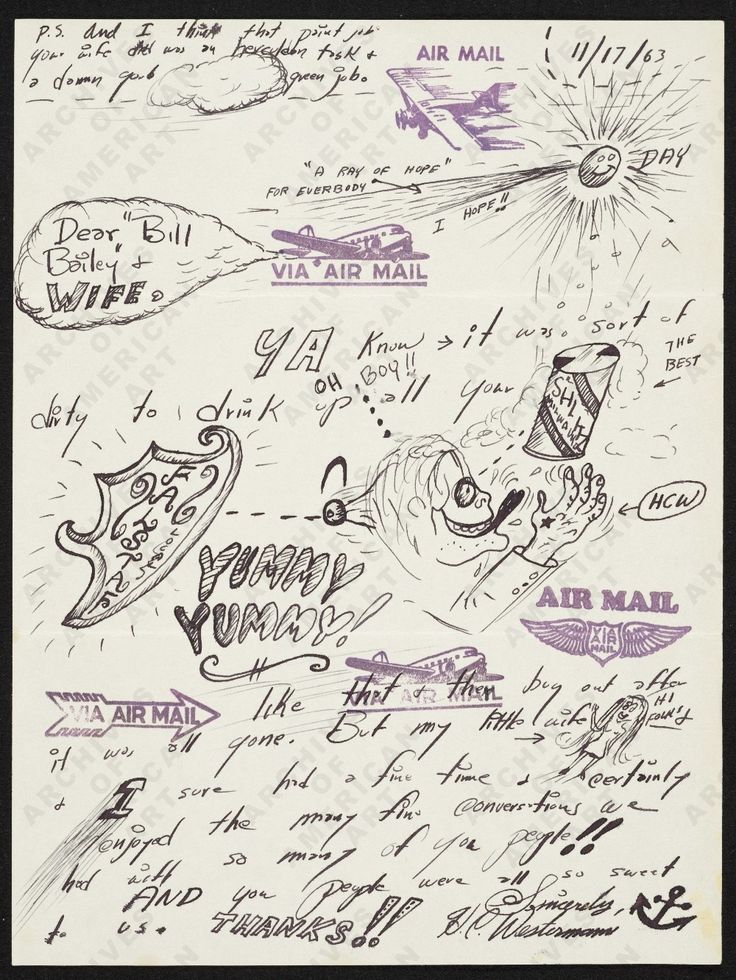 P.S. and I think that paint job
your wife did was an herculean task &
a damn good green job.
AIR MAIL
11/17/63
DAY
"A RAY OF HOPE"
FOR EVERBODY
I HOPE!!
Dear "Bill
Bailey" &
WIFE.
VIA AIR MAIL
YA Know → it was sort of
THE
BEST
OH BOY!!
dirty to drink up all your
SHLITZ
FALSTAFF
HCW
YUMMY
YUMMY!
AIR MAIL
VIA
AIR
MAIL
VIA AIR MAIL
VIA AIR MAIL
like that & then buy out after
it was all gone. But my little wife
HI
FOLKS
& I sure had a fine time & certainly
enjoyed the many fine conversations we
had with so many of you people!!
AND you people were all so sweet
to us. THANKS!!
Sincerely,
H.C. Westermann
ARCHIVES
OF
AMERICAN
ART